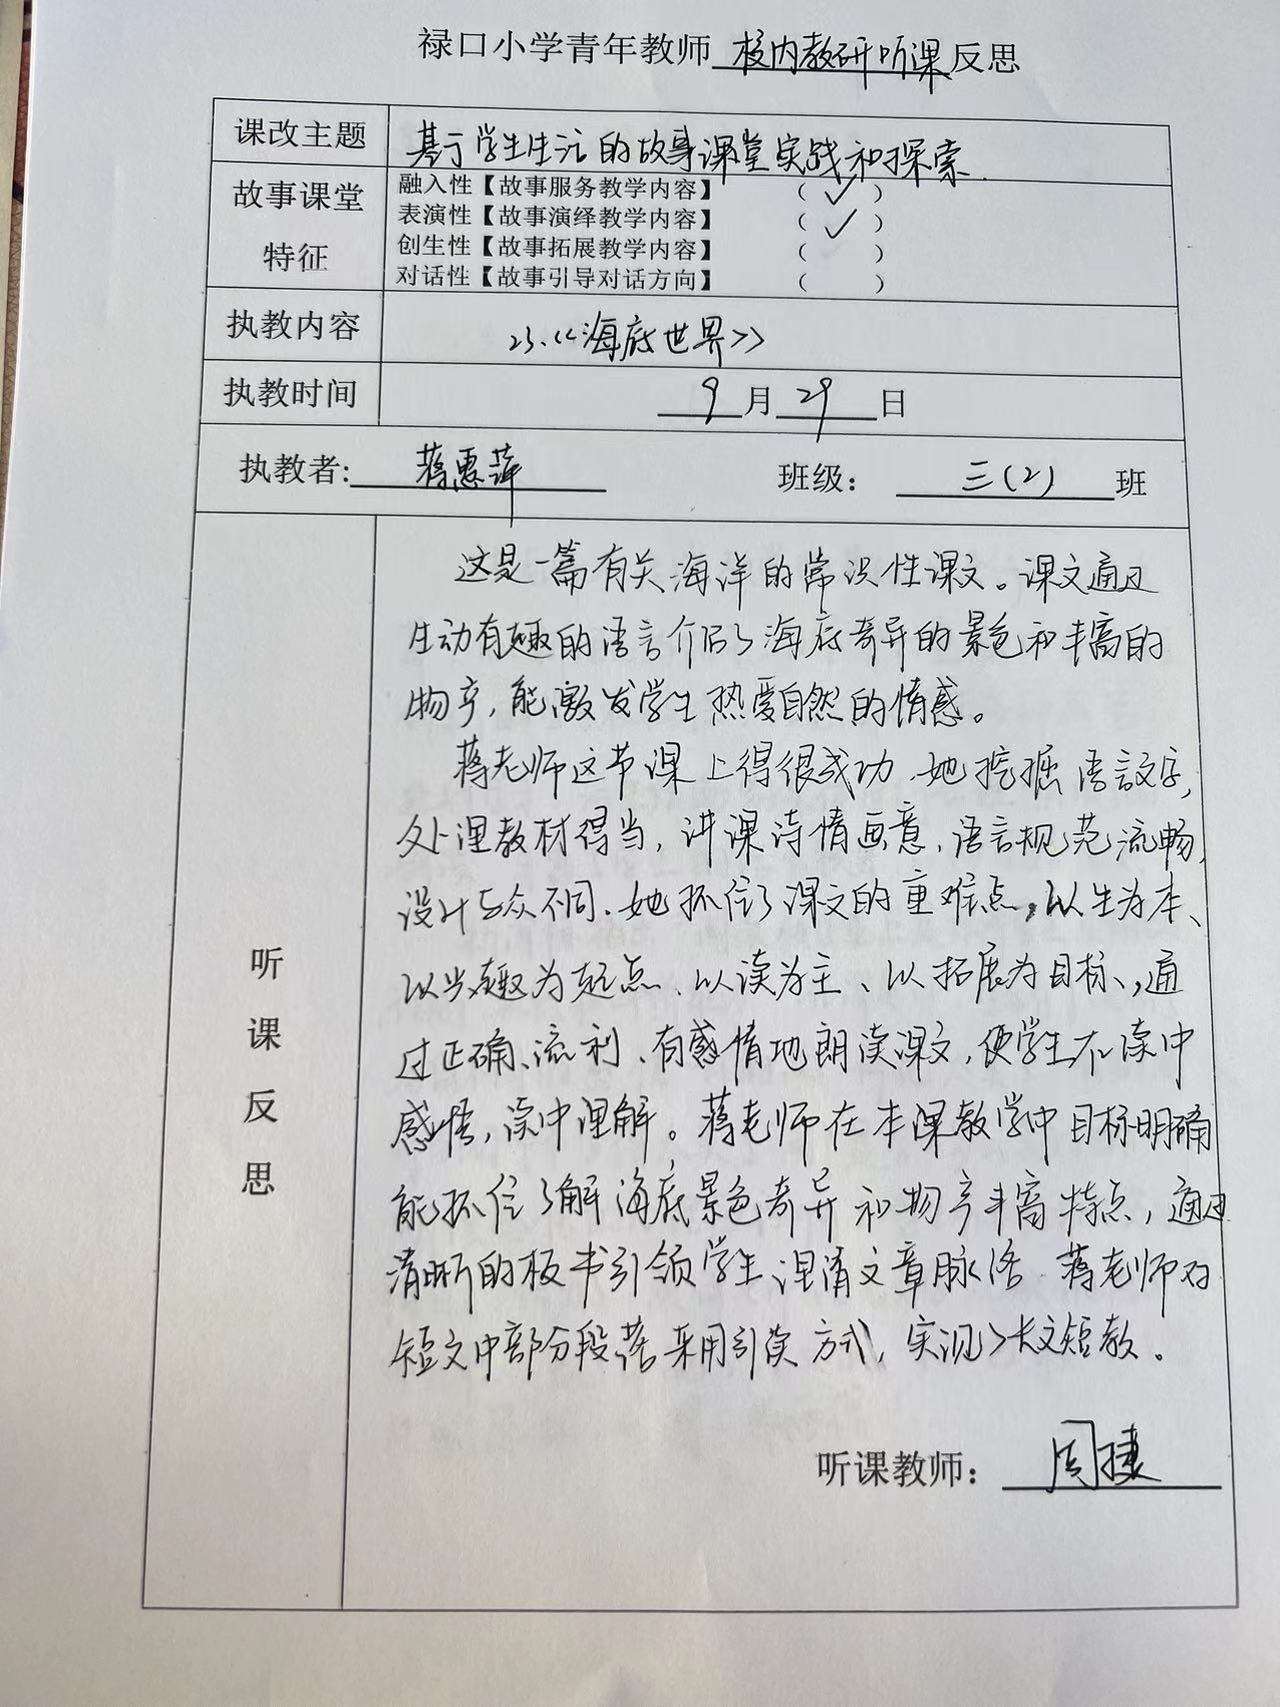 禄口小学青年教师校内教研听课反思
课改主题 基于学生生活的故事课堂实践和探索
故事课堂特征
融入性【故事服务教学内容】 (✓)
表演性【故事演绎教学内容】 (✓)
创生性【故事拓展教学内容】 ( )
对话性【故事引导对话方向】 ( )
执教内容 23.《海底世界》
执教时间 9月29日
执教者: 蒋惠萍 班级: 三(2)班
听课反思
这是一篇有关海洋的常识性课文。课文通过
生动有趣的语言介绍了海底奇异的景色和丰富的
物产,能激发学生热爱自然的情感。
蒋老师这节课上得很成功,她挖掘语言文字,
处理教材得当,讲课诗情画意,语言规范流畅,
设计与众不同.她抓住了课文的重难点,以生为本、
以兴趣为起点、以读为主、以拓展为目标,通
过正确、流利、有感情地朗读课文,使学生在读中
感悟,读中理解。蒋老师在本课教学中目标明确
能抓住了解海底景色奇异和物产丰富特点,通过
清晰的板书引领学生理清文章脉络.蒋老师对
短文中部分段落采用引读方式,实现了长文短教。
听课教师: 周捷